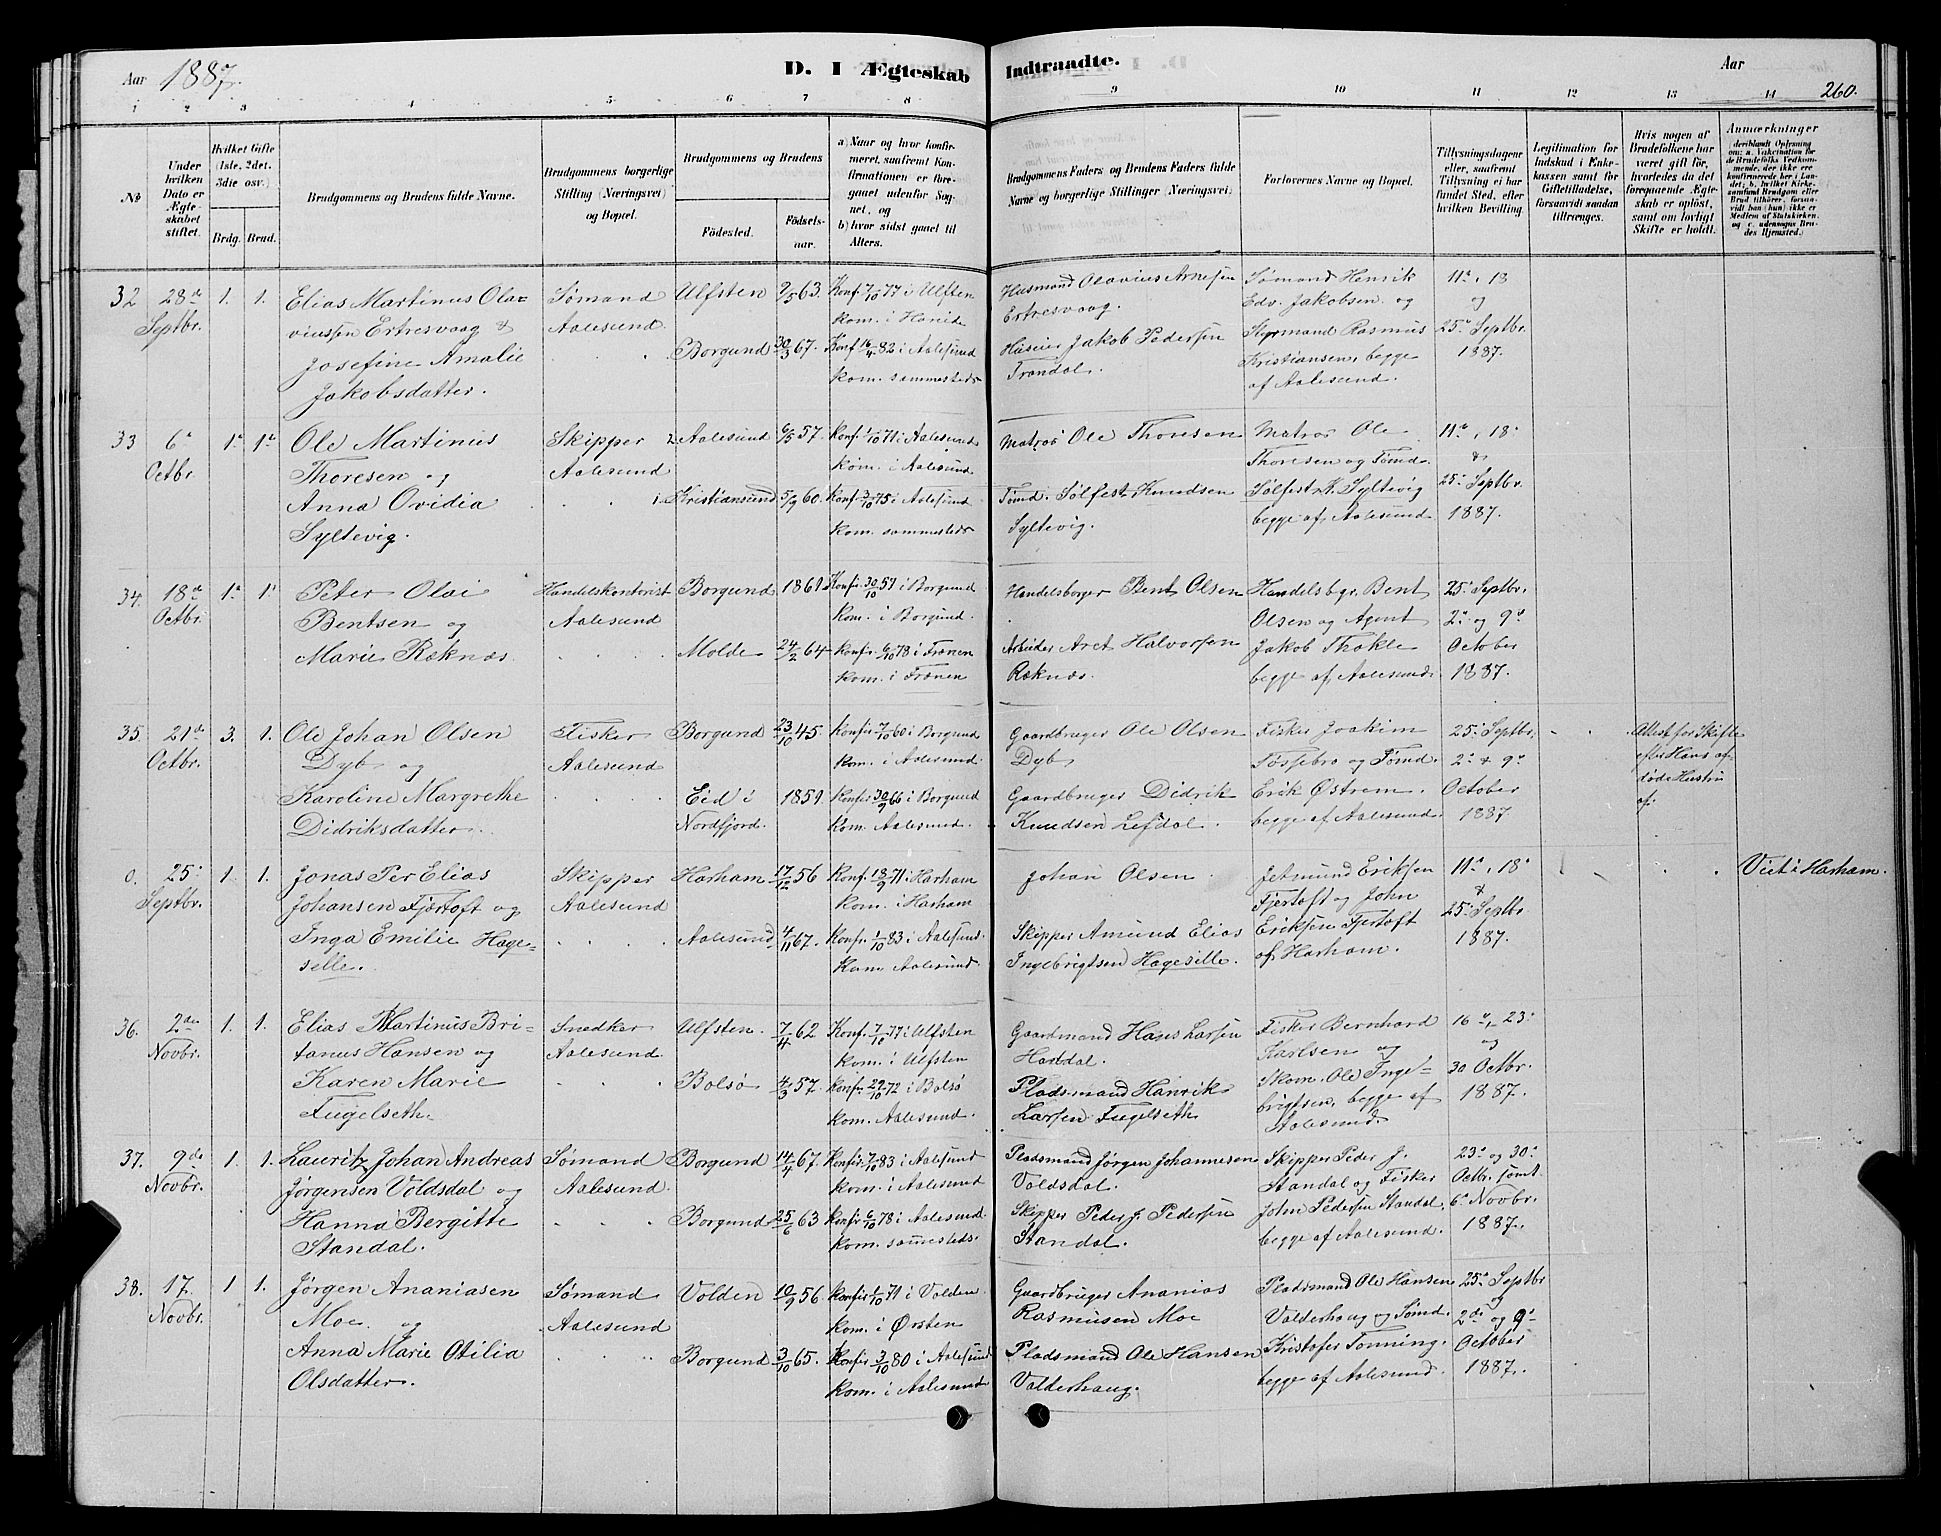 Aar 1887.
D. I Ægteskab Indtraadte.
Aar
260.
1 2 3 4 5 6 7 8 9 10 11 12 13 14
№
Under hvilken Dato er Ægteskabet stiftet.
Hvilket Gifte (1ste, 2det, 3dte osv.)
Brdg. Brud.
Brudgommens og Brudens fulde Navne.
Brudgommens borgerlige Stilling (Næringsvei) og Bopæl.
Brudgommens og Brudens
Fødested.
Fødsels-aar.
a) Naar og hvor konfirmeret, saafremt Konfirmationen er foregaaet udenfor Sognet, og
b) hvor sidst gaaet til Alters.
Brudgommens Faders og Brudens Faders fulde Navne og borgerlige Stillinger (Næringsvei)
Forlovernes Navne og Bopæl.
Tillysningsdagene eller, saafremt Tillysning ei har fundet Sted, efter hvilken Bevilling.
Legitimation for Indskud i Enkekassen samt for Giftetilladelse, forsaavidt saadan tiltrænges.
Hvis nogen af Brudefolkene har været gift, hvorledes da det foregaaende Ægteskab er opløst, samt om lovligt Skifte er holdt.
Anmærkninger
(deriblandt Oplysning om: a. Vakcination for de Brudefolks Vedkommende, der ikke er konfirmerede her i Landet; b. hvilket Kirkesamfund Brudgom eller Brud tilhører, forsaavidt han (hun) ikke er Medlem af Statskirken, og c. udensogns Brudes Hjemsted.)
32 28de Septbr. 1. 1.
Elias Martinus Olaviussen Ertresvaag &
Josefine Amalie Jakobsdatter.
Sømand Aalesund
Ulfsten 9/5 63. Konf. 7/10 77 i Ulfsten kom. i Hareide
Borgund 30/3 67. Konf 16/4 82 i Aalesund kom. sammesteds
Husmand Olavius Arnesen Ertresvaag.
Huseier Jakob Pedersen Trandal.
Sømand Henrik Edv. Jakobsen og Styrmand Rasmus Kristiansen, begge af Aalesund.
11te, 18 og 25de Septbr. 1887.
33 6te Octbr. 1te 1te
Ole Martinus Thoresen og
Anna Ovidia Syltevig.
Skipper Aalesund
Aalesund 6/5 57. Konf. 1/10 71 i Aalesund kom. i Aalesund
Kristiansund 5/9 60. Konf. 3/10 75 i Aalesund kom. sammesteds
Matros Ole Thoresen
Tømd. Sølfest Knudsen Syltevig.
Matros Ole Thoresen og Tømd. Sølfest K. Syltevig begge af Aalesund
11te, 18: & 25: Septbr. 1887.
34. 18de Octbr. 1te 1'
Peter Olai Bentsen og
Marie Reknæs.
Handelskontorist Aalesund
Borgund 1861. Konfir 30/10 59 i Borgund Kom. i Borgund.
Molde 24/2 64 konfir 6/10 78 i Frænen kom. i Frænen
Handelsborger Bent Olsen
Arbeider Aret Halvorsen Reknæs.
Handelsbgr. Bent Olsen og Agent Jakob Thokle begge af Aalesund
25: Septbr. 2: og 9de October 1887.
35. 21de Octbr. 3. 1.
Ole Johan Olsen Dyb og
Karoline Margrethe Didriksdatter.
Fisker Aalesund
Borgund 23/10 45. Konfir 7/10 60 i Borgund kom. i Aalesund
Eid i Nordfjord. 1851. Konfir 30/9 66 i Borgund kom. Aalesund.
Gaardbruger Ole Olsen Dyb
Gaardbruger Didrik Knudsen Lefdal.
Fisker Joakim Fossebro og Tømd. Erik Østrem. begge af Aalesund
25: Septbr. 2: & 9de October 1887
Attest for Skifte efter Hans afdøde Hustru
0. 25: Septbr. 1. 1.
Jonas Per Elias Johansen Fjærtoft og
Inga Emilie Hageselle.
Skipper Aalesund
Harham 17/12 56 Konf. 18/9 71 i Harham kom. i Harham
Aalesund 4/11 67. Konfr. 1/10 83 i Aalesund. Kom Aalesund.
Johan Olsen
Skipper Amund Elias Ingebrigtsen Hageselle.
Jetmund Eriksen Fjertoft og John Eriksen Fjertoft af Harham.
11te, 18: & 25: Septbr. 1887.
Viet i Harham.
36. 2den Novbr. 1. 1.
Elias Martinus Britanus Hansen og
Karen Marie Fugelseth.
Snedker Aalesund
Ulfsten. 7/4 62 Konf. 7/10 77 i Ulfsten kom. i Ulfsten
Bolsø 4/3 57. Konfir. 29/10 72 i Bolsø kom. Aalesund.
Gaardmand Hans Larsen Haddal.
Pladsmand Hanrik Larsen Fugelseth
Fisker Bernhard Karlsen og Skom. Ole Ingebrigtsen, begge af Aalesund.
16de, 23: og 30 Octbr. 1887.
37. 9de Novbr. 1. 1.
Lauritz Johan Andreas Jørgensen Voldsdal og
Hanna Bergitte Standal.
Sømand Aalesund.
Borgund 14/4 67. Konfir. 7/10 83 i Aalesund kom. i Aalesund
Borgund 25/6 63 Konfir 6/10 78 i Aalesund. kom. sammesteds.
Pladsmand Jørgen Johannesen Voldsdal.
Skipper Peder J. Pedersen Standal.
Skipper Peder J. Standal og Fisker John Pedersen Standal, begge af Aalesund.
23: og 30: Octbr. samt 6te Novbr. 1887.
38. 17 Novbr. 1 1.
Jørgen Ananiasen Moe og
Anna Marie Otilia Olsdatter.
Sømand Aalesund
Volden 10/9 56. Konfir 1/10 71 i Volden kom. i Ørsten
Borgund 3/10 65. Konfir 3/10 80 i Aalesund kom. i Aalesund
Gaardbruger Ananias Rasmusen Moe
Pladsmand Ole Hansen Valderhaug.
Pladsmand Ole Hansen Valderhaug og Sømd. Kristofer Tonning. begge af Aalesund.
25de Septbr og 2de og 9de October 1887.